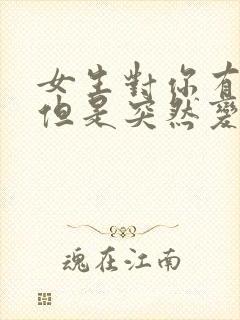 女生對你有
但是突然變
魂在江南